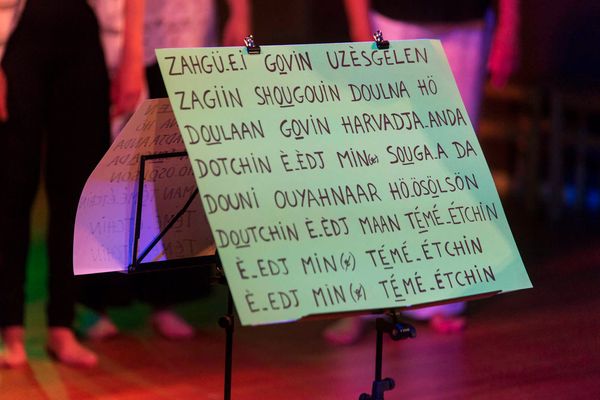 ZAHGÜ_EÏ GOVIN UZÈSGELEN
ZAGIIN SHOUGOUIN DOULNA HÖ
DOULAAN GOVIN HARVADJA_ANDA
DOTCHIN È.ÈDJ MIN(e) SOUGA.A DA
DOUNI OUYAHNAAR HÖ.ÖSÖLSÖN
DOUTCHIN È.ÈDJ MAAN TÉMÉ_ÉTCHIN
È_EDJ MIN(e) TÉMÉ_ÉTCHIN
È_EDJ MIN(e) TÉMÉ_ÉTCHIN